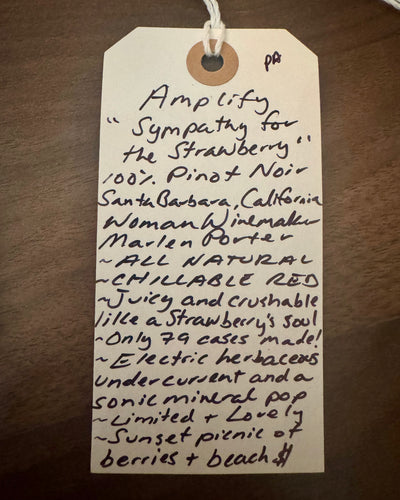 PA
Amplify
"Sympathy for
the Strawberry"
100% Pinot Noir
Santa Barbara, California
Woman Winemaker
Marlen Porter
~ALL NATURAL
~CHILLABLE RED
~Juicy and crushable
like a Strawberry's soul
~Only 79 cases made!
~Electric herbaceous
undercurrent and a
sonic mineral pop
~Limited + Lovely
~Sunset picnic of
berries + beach